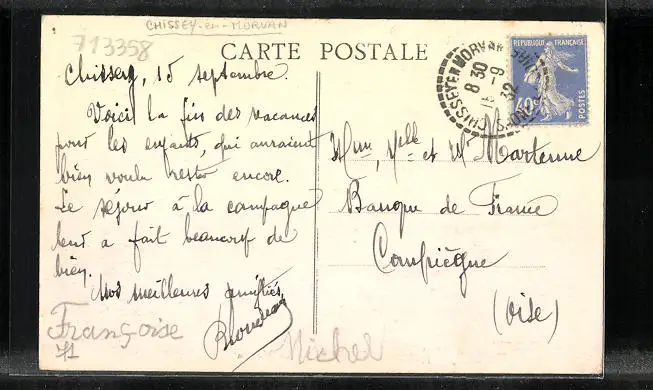 CHISSEY-en-MORVAN
713358
CARTE POSTALE
REPUBLIQUE FRANÇAISE
40c
POSTES
CHISSEY EN MORVAN
8 30
15 9
32
Chissey, 15 septembre.
Voici la fin des vacances
pour les enfants, qui auraient
bien voulu rester encore.
Le séjour à la campagne
leur a fait beaucoup de
bien.
Nos meilleures amitiés
Françoise
71
Michel
Mme, Melle et Mr
Banque de France
Compiègne
(Oise)